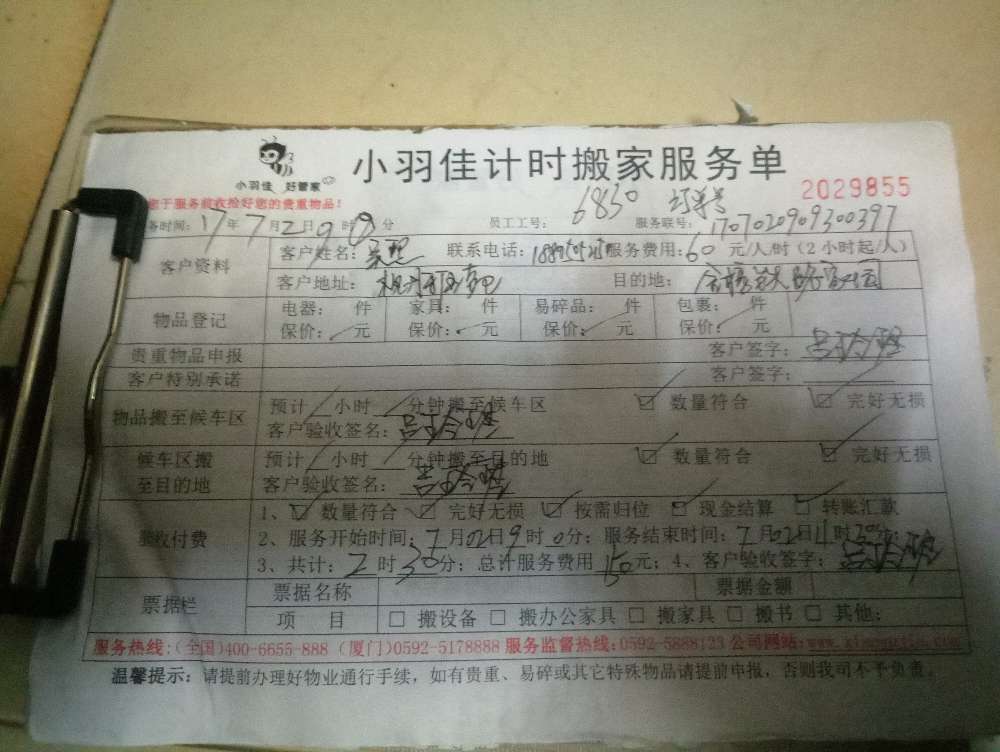 小羽佳计时搬家服务单
小羽佳 好管家
2029855
于服务前收捡好您的贵重物品!
务时间: 17年7月2日9时 分 员工工号: 6830 服务联号: 1707020909300397
客户资料 客户姓名: 联系电话: 服务费用: 60 元/人/时 (2小时起/人)
客户地址: 目的地:
物品登记 电器: 件 家具: 件 易碎品: 件 包裹: 件
保价: 元 保价: 元 保价: 元 保价: 元
贵重物品申报 客户签字:
客户特别承诺 客户签字:
物品搬至候车区 预计 小时 分钟搬至候车区 数量符合 完好无损
客户验收签名:
候车区搬至目的地 预计 小时 分钟搬至目的地 数量符合 完好无损
客户验收签名:
验收付费 1、数量符合 完好无损 按需归位 现金结算 转账汇款
2、服务开始时间: 7月02日9时0分; 服务结束时间: 7月02日11时30分;
3、共计: 2时30分; 总计服务费用 150元; 4、客户验收签字:
票据栏 票据名称 票据金额
项 目 □ 搬设备 □ 搬办公家具 □ 搬家具 □ 搬书 □ 其他:
服务热线: (全国)400-6655-888 (厦门)0592-5178888 服务监督热线:0592-5888123 公司网站:
温馨提示: 请提前办理好物业通行手续, 如有贵重、易碎或其它特殊物品请提前申报, 否则我司不予负责。